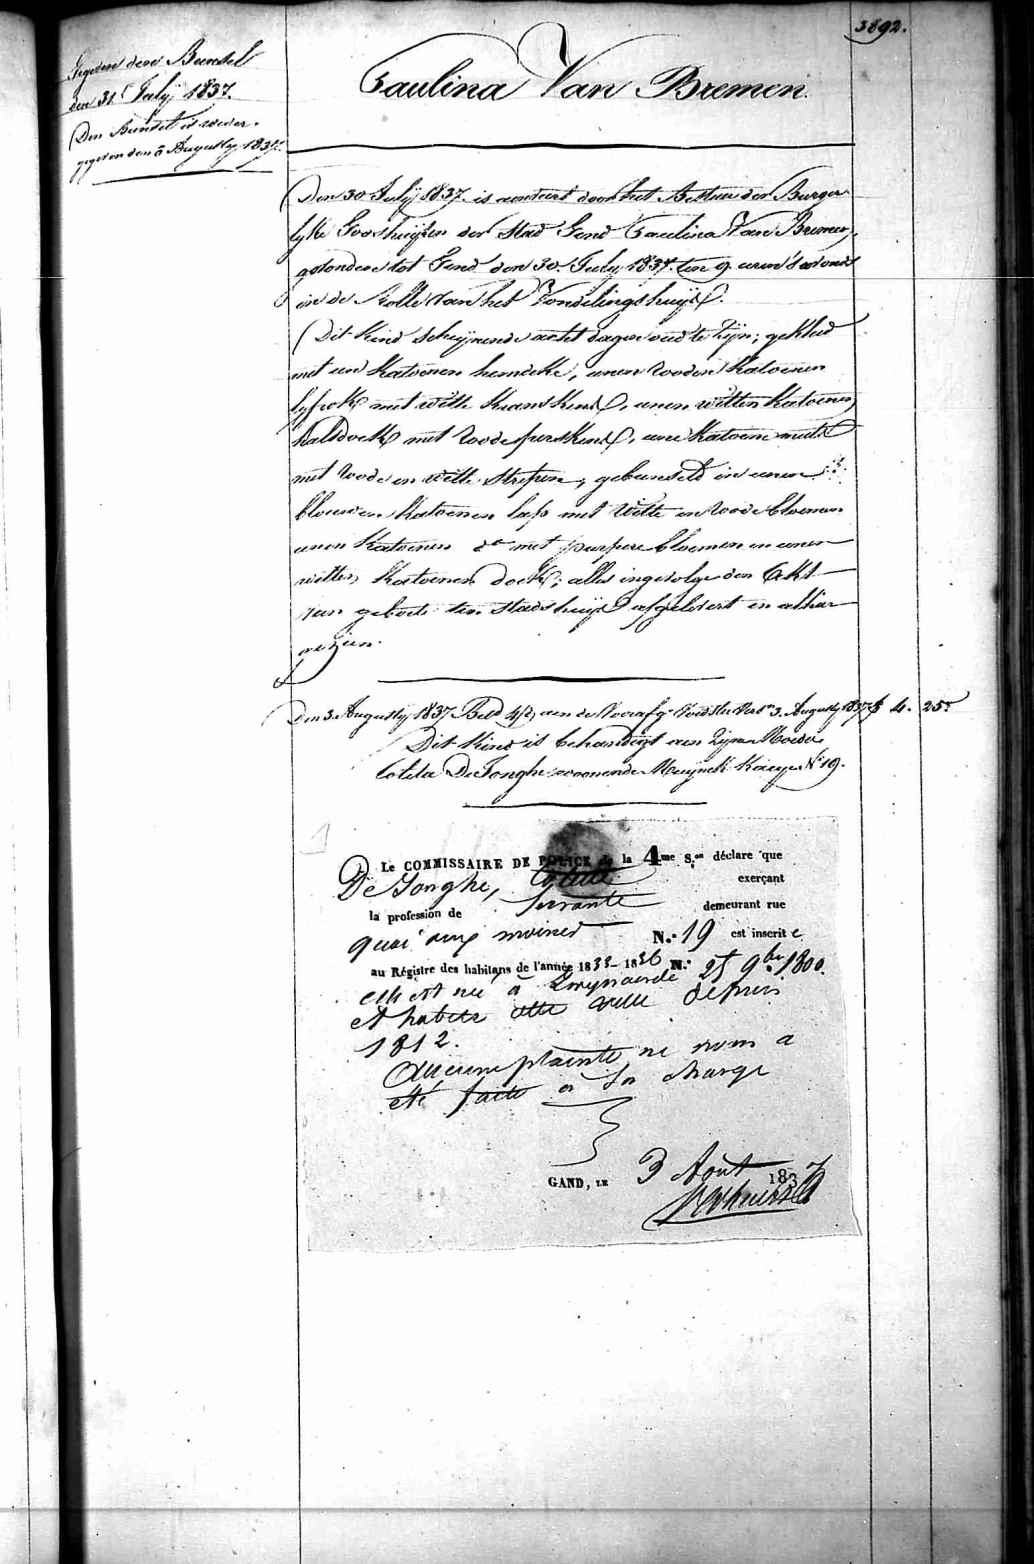 3892.
Gegeven deze Bundsel
den 31 July 1837.
Den Bundsel is weder-
gegeven den 3 Augusty 1837.
Caulina Van Bremen.
Den 30 July 1837 is aenveird door het Bestuer der Burger
lyke Godshuyzen der Stad Gend Caulina Van Bremen,
gevonden tot Gend den 30 July 1837 ten 9 uren 's avonds
in de Rolle van het Vondelingshuys.
Dit kind schynende acht dagen oud te zyn; gekleed
met een katoenen hemdeke, eenen rooden katoenen
lyfrok met witte kranskens, eenen witten katoenen
halsdoek met roode perskens, eene katoene muts
met roode en witte strepen, gebunseld in eenen
blauwen katoenen lap met witte en roode bloemen
eenen katoenen do met purpere bloemen en eenen
witten katoenen doek; alles ingevolge den Akt
van geboorte ten Stadshuyse afgelevert en alhier
gezien.
Den 3 Augusty 1837 Beta aen de Voedster 3 Augusty 1837 4. 25
Dit kind is behandigt aen zyne Moeder
Colela De Jonghe woonende Muynck Kaeye No 19.
Le COMMISSAIRE DE POLICE de la 4me S.on déclare que
De Jonghe, exerçant
la profession de Servante demeurant rue
quai aux moines N.o 19 est inscrit e
au Régistre des habitans de l'année 1833-1836 N.o
elle est né à Zwynaerde 25 9bre 1800.
et habite cette ville depuis
1812.
Aucune plainte ne nous a
été faite à sa charge
GAND, LE 3 Août 1837